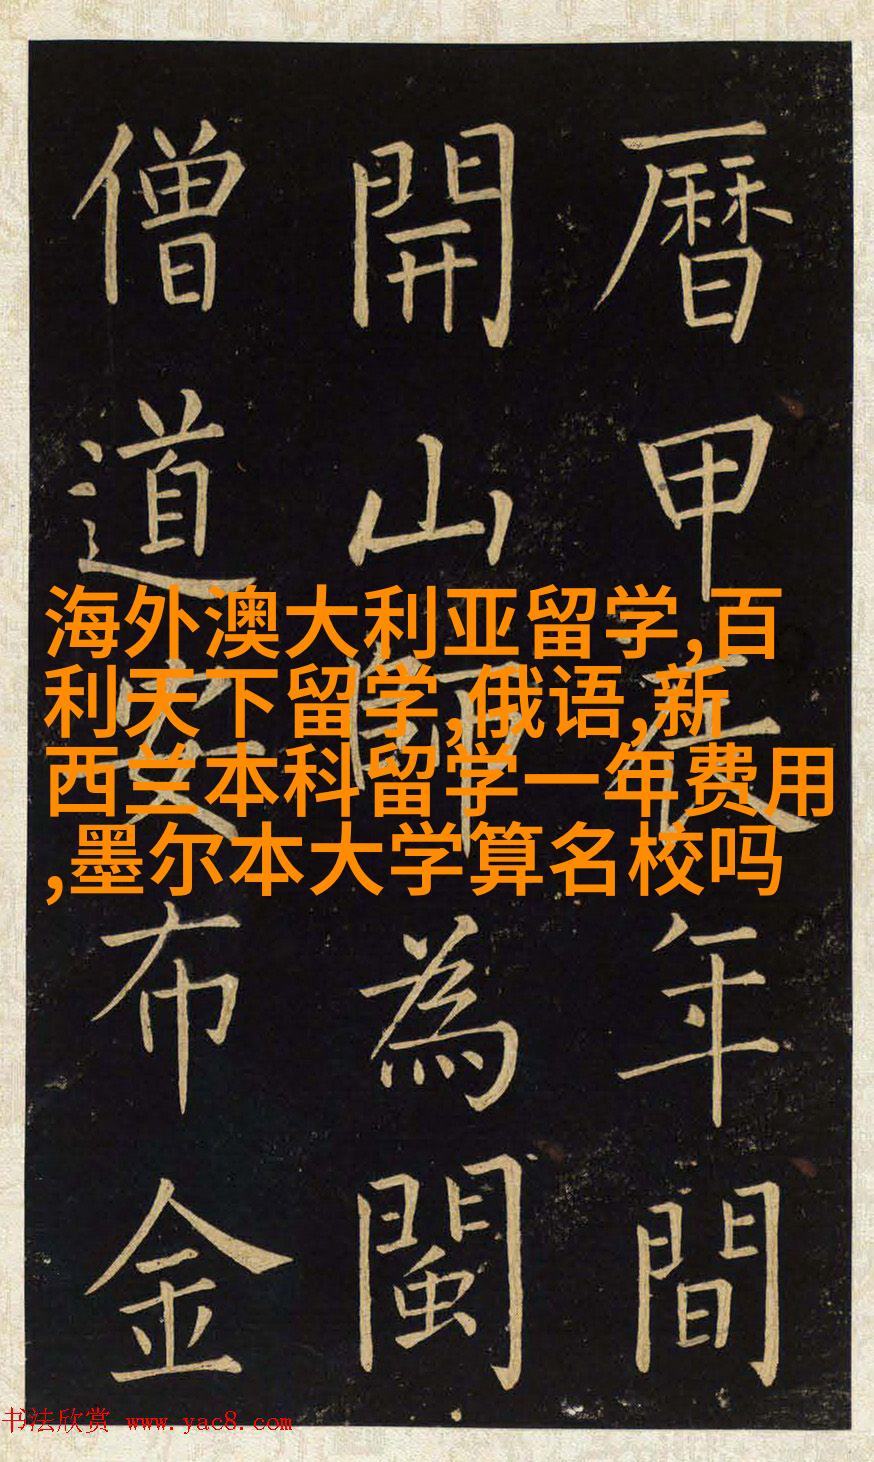 曆甲辰年間
開山師為閩
僧道安布金
海外澳大利亚留学,百
利天下留学,俄语,新
西兰本科留学一年费用
,墨尔本大学算名校吗
书法欣赏 www.yac8.com